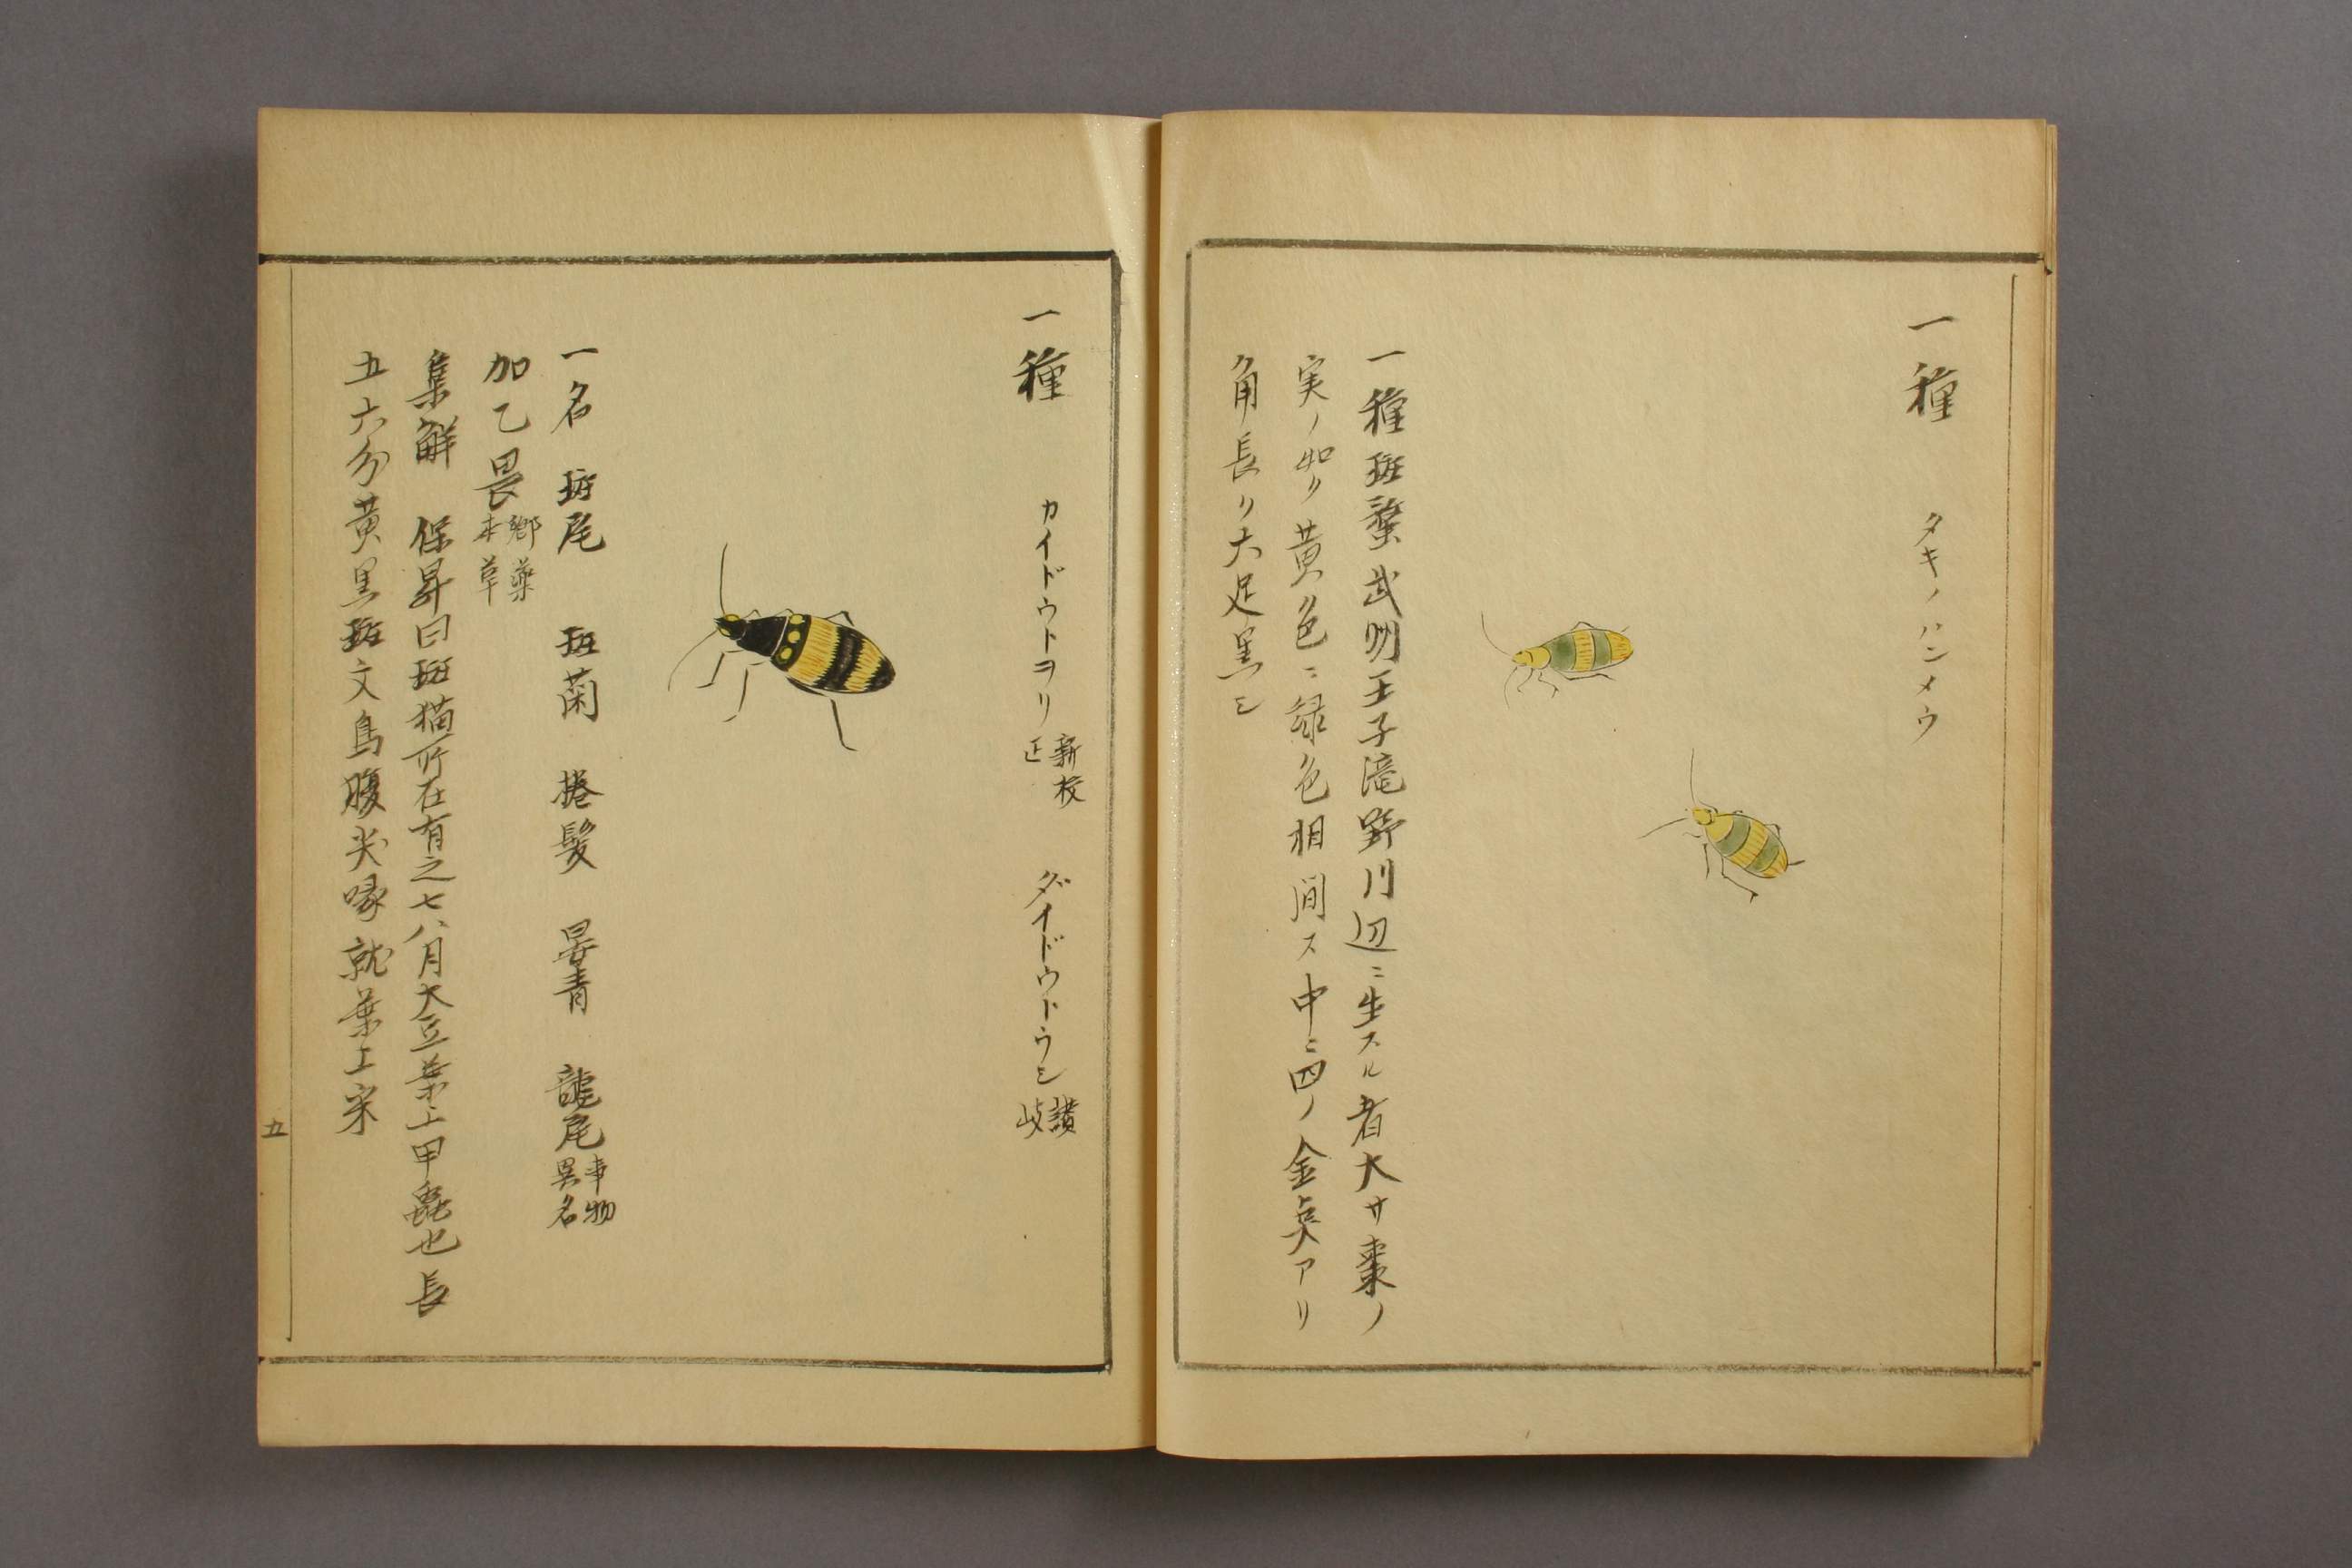 一種　タキノハンメウ
一種斑蟊武州王子滝野川辺ニ生スル者大サ棗ノ
実ノ如ク黄色ニ緑色相間ス中ニ四ノ金点アリ
角長リ六足黒シ
一種　カイドウトヲリ 新校正　ダイドウトウシ 讃岐
一名　斑尾　斑菌　捲髪　晏青　龍尾 事物異名
加乙畏 郷薬本草
集解　保昇曰斑猫所在有之七八月大豆葉上甲蟲也長
五六分黄黒斑文烏腹尖喙就葉上采
五